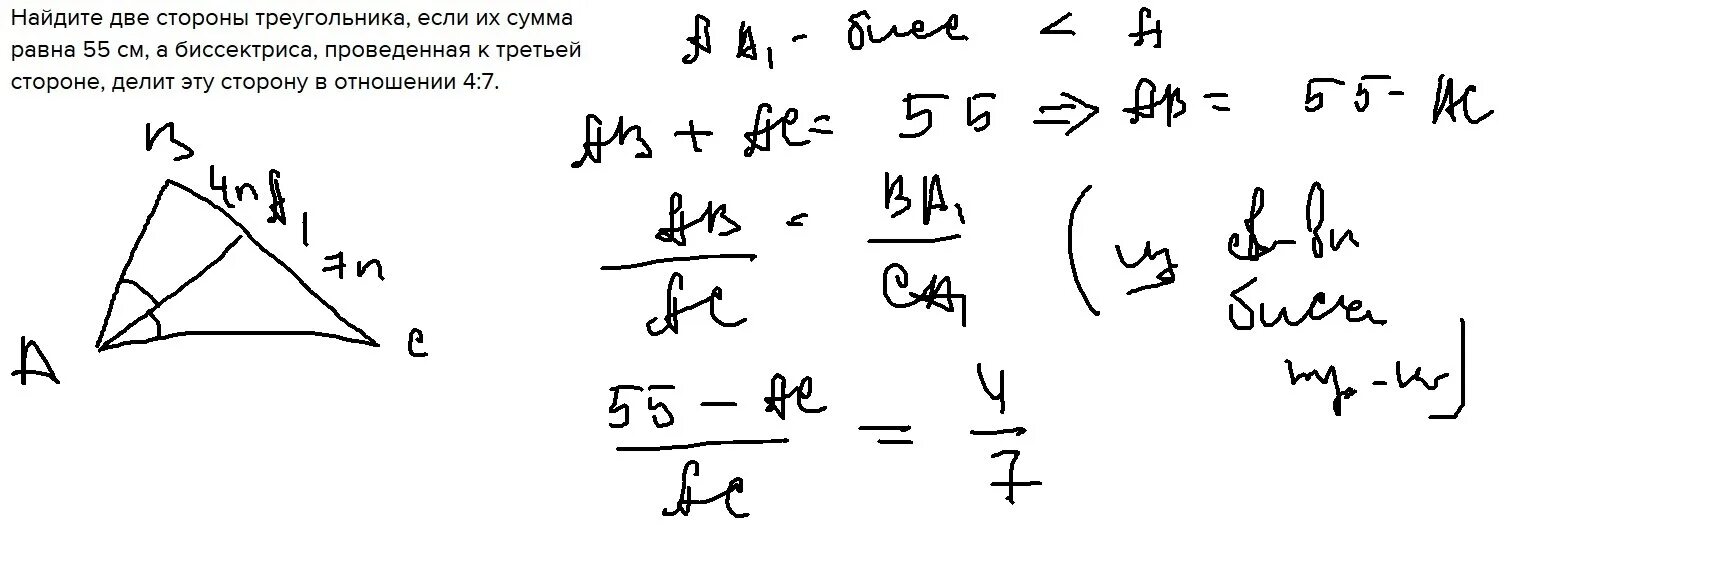 Найдите две стороны треугольника, если их сумма
равна 55 см, а биссектриса, проведенная к третьей
стороне, делит эту сторону в отношении 4:7.
AA₁ - бисс < A
AB + AC = 55 ⇒ AB = 55 - AC
B
4n A₁
7n
A
C
AB / AC = BA₁ / CA₁ (из св-ва
биссе
тр-ка)
55 - AC / AC = 4 / 7